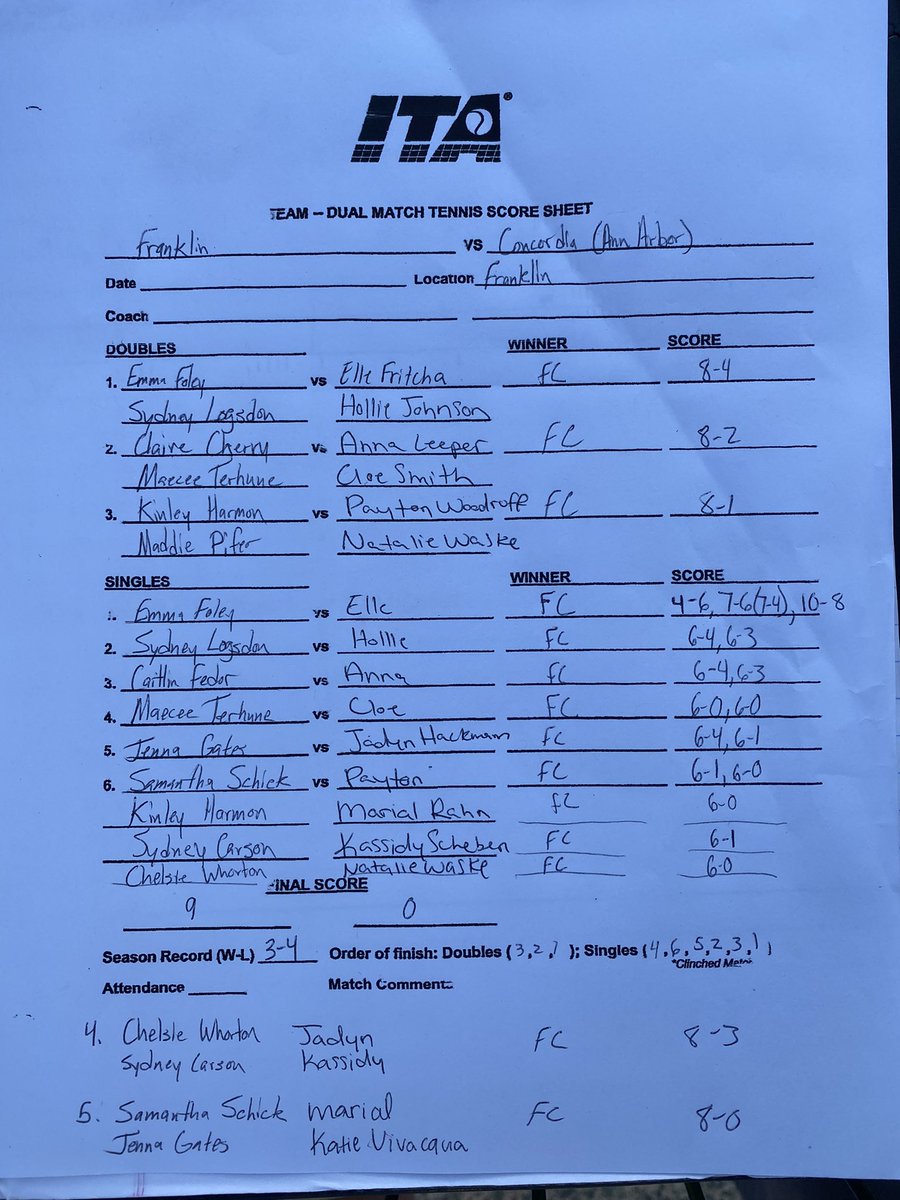 ITA
TEAM – DUAL MATCH TENNIS SCORE SHEET
Franklin vs Concordia (Ann Arbor)
Date Location Franklin
Coach
DOUBLES WINNER SCORE
1. Emma Foley vs Elle Fritcha FC 8-4
Sydney Logsdon Hollie Johnson
2. Claire Cherry vs Anna Leeper FC 8-2
Maecee Terhune Cloe Smith
3. Kinley Harmon vs Payton Woodroff FC 8-1
Maddie Pifer Natalie Waske
SINGLES WINNER SCORE
1. Emma Foley vs Elle FC 4-6, 7-6(7-4), 10-8
2. Sydney Logsdon vs Hollie FC 6-4, 6-3
3. Caitlin Fedor vs Anna FC 6-4, 6-3
4. Maecee Terhune vs Cloe FC 6-0, 6-0
5. Jenna Gates vs Jadyn Hackmann FC 6-4, 6-1
6. Samantha Schick vs Payton FC 6-1, 6-0
Kinley Harmon Marial Rahn FC 6-0
Sydney Carson Kassidy Scheben FC 6-1
Chelsie Whorton Natalie Waske FC 6-0
FINAL SCORE
9 0
Season Record (W-L) 3-4 Order of finish: Doubles (3,2,1); Singles (4,6,5,2,3,1)
*Clinched Match
Attendance Match Comments
4. Chelsie Whorton Jadyn FC 8-3
Sydney Carson Kassidy
5. Samantha Schick Marial FC 8-0
Jenna Gates Katie Vivacqua